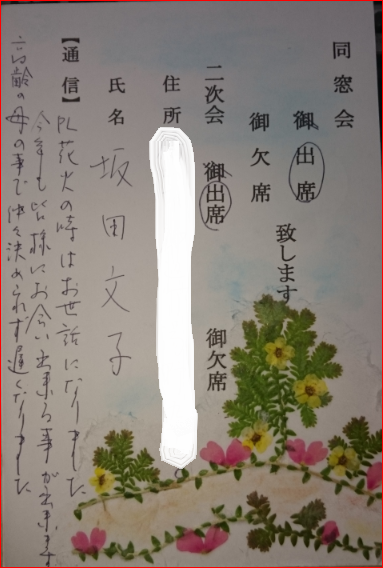 同窓会
御出席
御欠席
致します
二次会 御出席 御欠席
住所
氏名 坂田文子
【通信】 PL花火の時はお世話になりました
今年も皆様にお会い出来る事が出来ます
高齢の母の事で仲々決められず遅くなりました